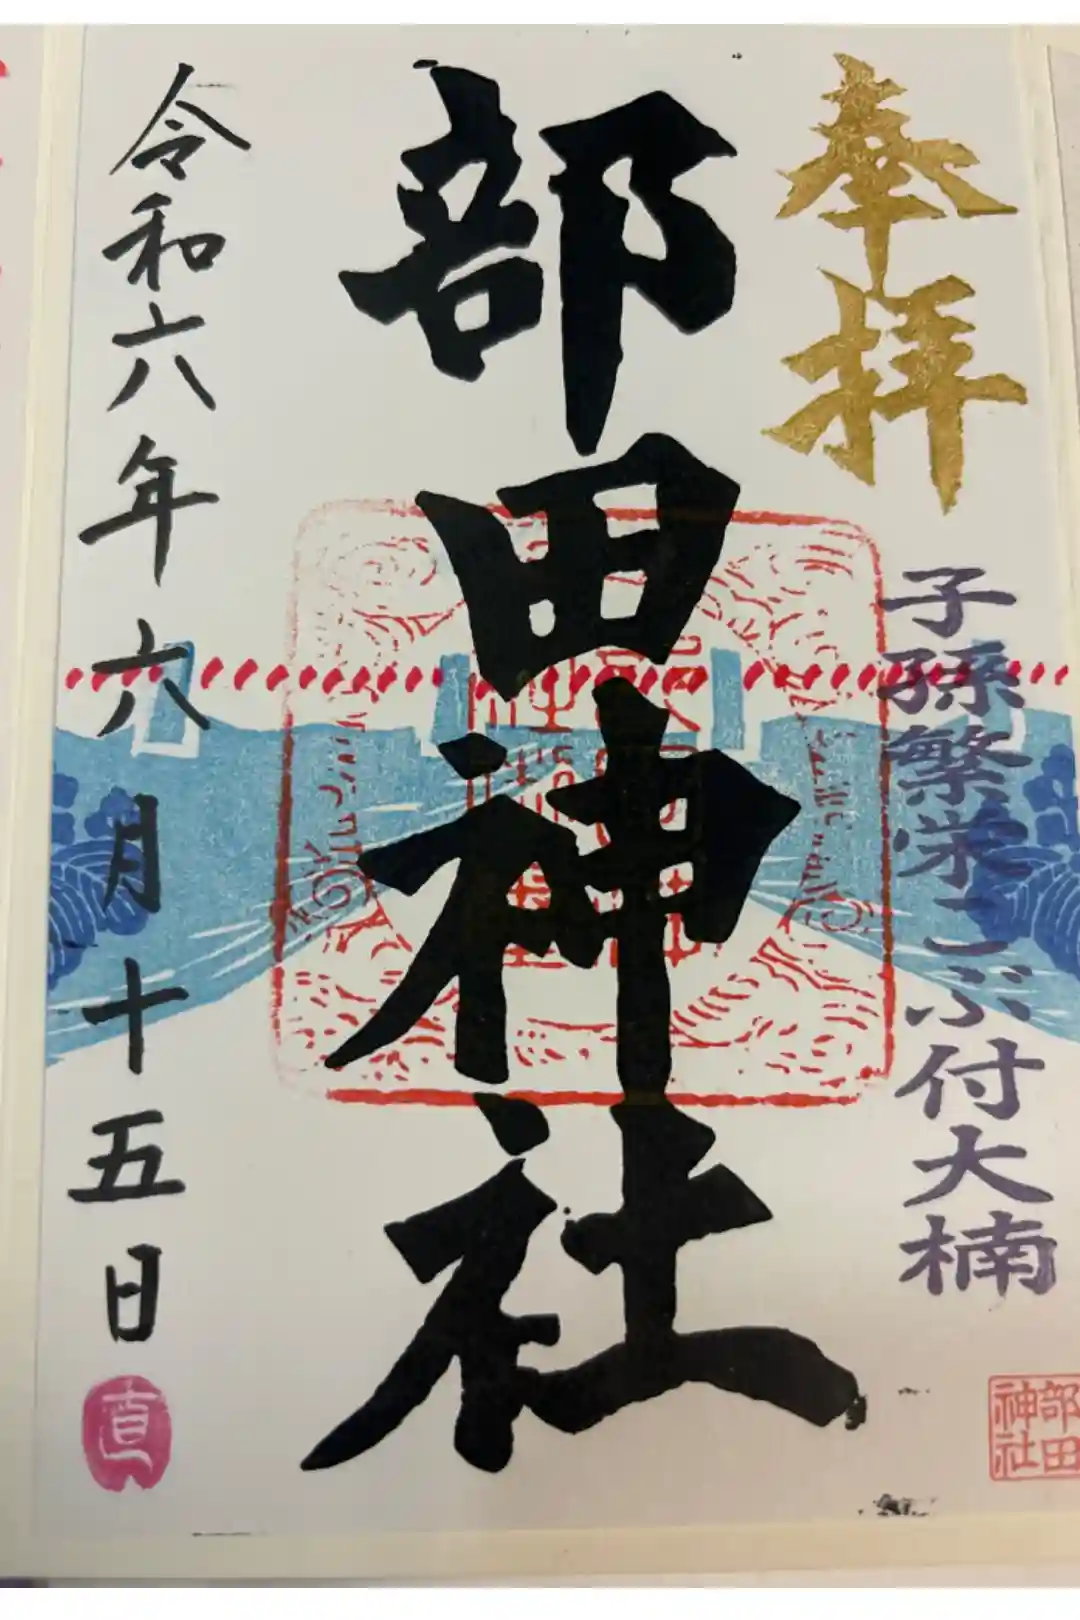 奉拝
子孫繁栄こぶ付大楠
部田神社
部田神社
令和六年六月十五日